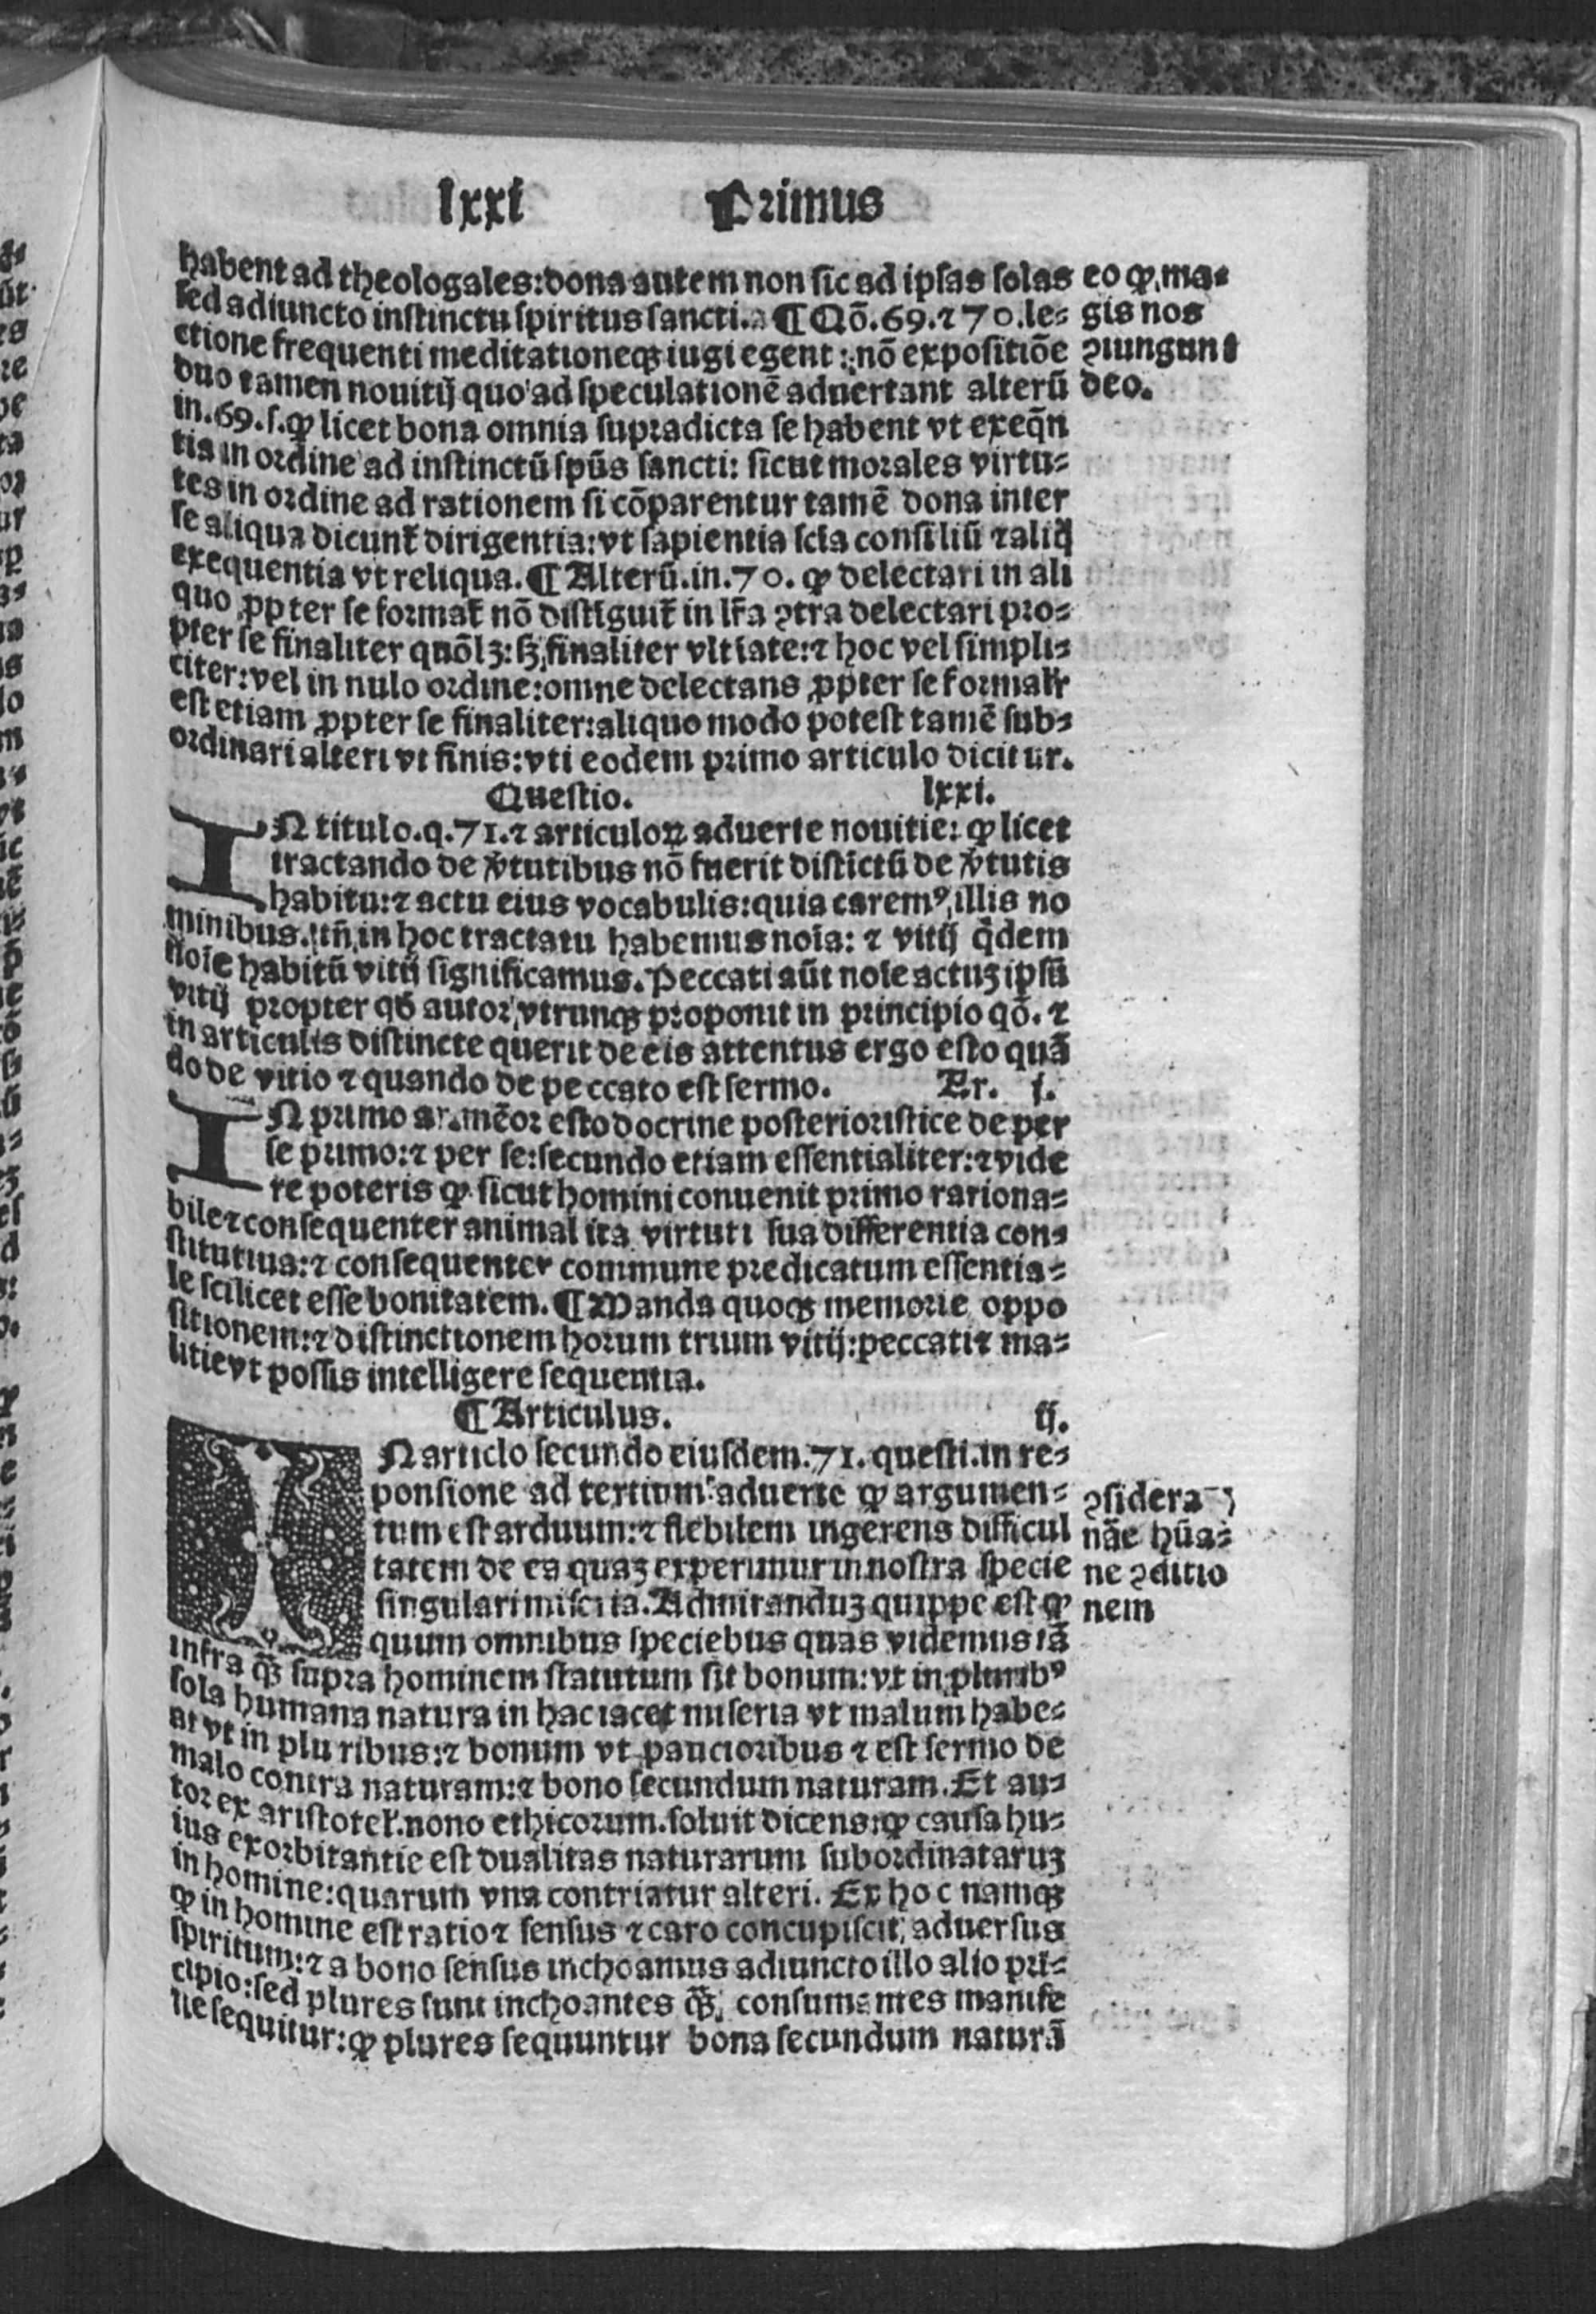 lxxi Primus
habent ad theologales: dona autem non sic ad ipsas solas
sed adiuncto instinctu spiritus sancti. ¶ Qō. 69. ⁊ 70. le⸗
ctione frequenti meditationeqꝫ iugi egent: nō expositiōe
duo tamen nouitij quo ad speculationē aduertant alterū
in. 69. s. ꝙ licet bona omnia supradicta se habent vt exeq̄n
tia in ordine ad instinctū spūs sancti: sicut morales virtu⸗
tes in ordine ad rationem si cōparentur tamē dona inter
se aliqua dicunt᷑ dirigentia: vt sapientia scīa consiliū ⁊ aliq̄
exequentia vt reliqua. ¶ Alterū. in. 70. ꝙ delectari in ali
quo ꝓpter se format᷑ nō distīguit᷑ in lr̄a ꝯtra delectari pro⸗
pter se finaliter quōlꝫ: sꝫ finaliter vltīate: ⁊ hoc vel simpli⸗
citer: vel in nulo ordine: omne delectans ꝓpter se formalr̄
est etiam ꝓpter se finaliter: aliquo modo potest tamē sub⸗
ordinari alteri vt finis: vti eodem primo articulo dicitur.
eo ꝙ ma⸗
gis nos
ꝯiungunt
deo.
Questio. lxxi.
IN titulo. q. 71. ⁊ articuloꝝ aduerte nouitie: ꝙ licet
tractando de v̄tutibus nō fuerit distictū de v̄tutis
habitu: ⁊ actu eius vocabulis: quia caremꝰ illis no
minibus. tn̄ in hoc tractatu habemus noīa: ⁊ vitij q̇dem
noīe habitū vitij significamus. Peccati aūt noīe actuꝫ ipsū
vitij propter qđ autor vtrunqꝫ proponit in principio qō. ⁊
in articulis distincte querit de eis attentus ergo esto quā
do de vitio ⁊ quando de peccato est sermo. Ar. i.
IN primo ar. memor esto docrine posterioristice de per
se primo: ⁊ per se: secundo etiam essentialiter: ⁊ vide
re poteris ꝙ sicut homini conuenit primo rationa⸗
bile ⁊ consequenter animal ita virtuti sua differentia con⸗
stitutiua: ⁊ consequenter commune predicatum essentia⸗
le scilicet esse bonitatem. ¶ Manda quoqꝫ memorie oppo
sitionem: ⁊ distinctionem horum trium vitij: peccati ⁊ ma⸗
litie vt possis intelligere sequentia.
¶ Articulus. ij.
IN articlo secundo eiusdem. 71. questi. in re⸗
ponsione ad tertium aduerte ꝙ argumen⸗
tum est arduum: ⁊ flebilem ingerens difficul
tatem de ea quaꝫ experimur in nostra specie
singulari miseria. Admiranduꝫ quippe est ꝙ
quum omnibus speciebus quas videmus tā
infra q̄ꝫ supra hominem statutum sit bonum: vt in pluribꝰ
sola humana natura in hac iacet miseria vt malum habe⸗
at vt in pluribus: ⁊ bonum vt paucioribus ⁊ est sermo de
malo contra naturam: ⁊ bono secundum naturam. Et au⸗
tor ex aristotel̄. nono ethicorum. soluit dicens: ꝙ causa hu⸗
ius exorbitantie est dualitas naturarum subordinataruꝫ
in homine: quarum vna contriatur alteri. Ex hoc namqꝫ
ꝙ in homine est ratio ⁊ sensus ⁊ caro concupiscit aduersus
spiritum: ⁊ a bono sensus inchoamus adiuncto illo alio pri⸗
cipio: sed plures sunt inchoantes q̄ꝫ consumantes manife
ste sequitur: ꝙ plures sequuntur bona secundum naturā
ꝯsidera
nāe hūa⸗
ne ꝯditio
nem